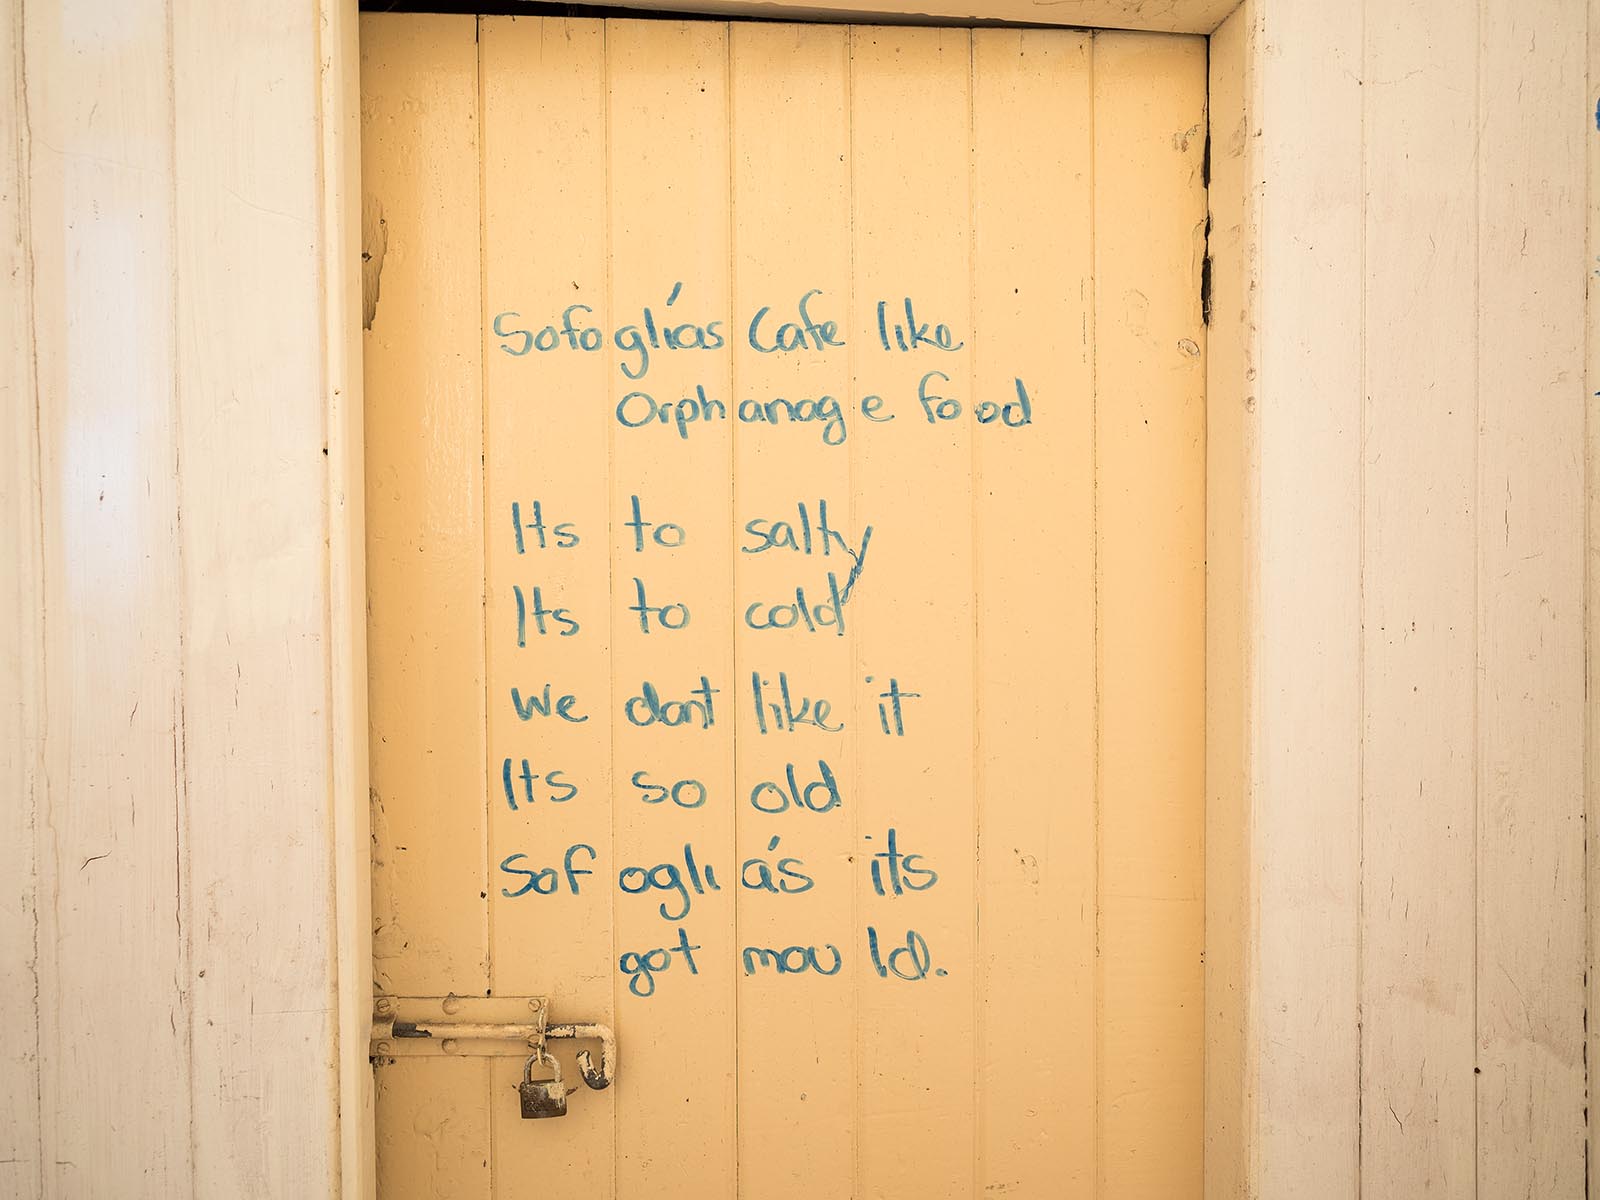 Sofoglías Cafe like
Orphanage food
Its to salty
Its to cold
We dont like it
Its so old
Sofogliá's its
got mould.